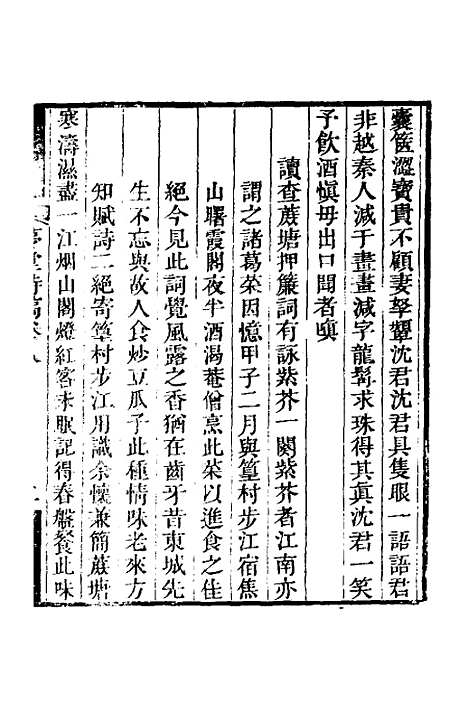 囊篋澀寶貴不顧妻孥顰沈君沈君具隻眼一語語君
非越秦人減于畫畫減字龍髯求珠得其真沈君一笑
予飲酒愼毋出口聞者嗔
讀查蔗塘押簾詞有詠紫芥一闋紫芥者江南亦
謂之諸葛菜因憶甲子二月與篁村步江宿焦
山曙霞閣夜半酒渴菴僧烹此菜以進食之佳
絕今見此詞覺風露之香猶在齒牙昔東城先
生不忘與故人食炒豆瓜子此種情味老來方
知賦詩二絕寄篁村步江用識余懷兼簡蔗塘
寒濤濕盡一江烟山閣燈紅客未眠記得春盤餐此味
亭堂詩稿卷八